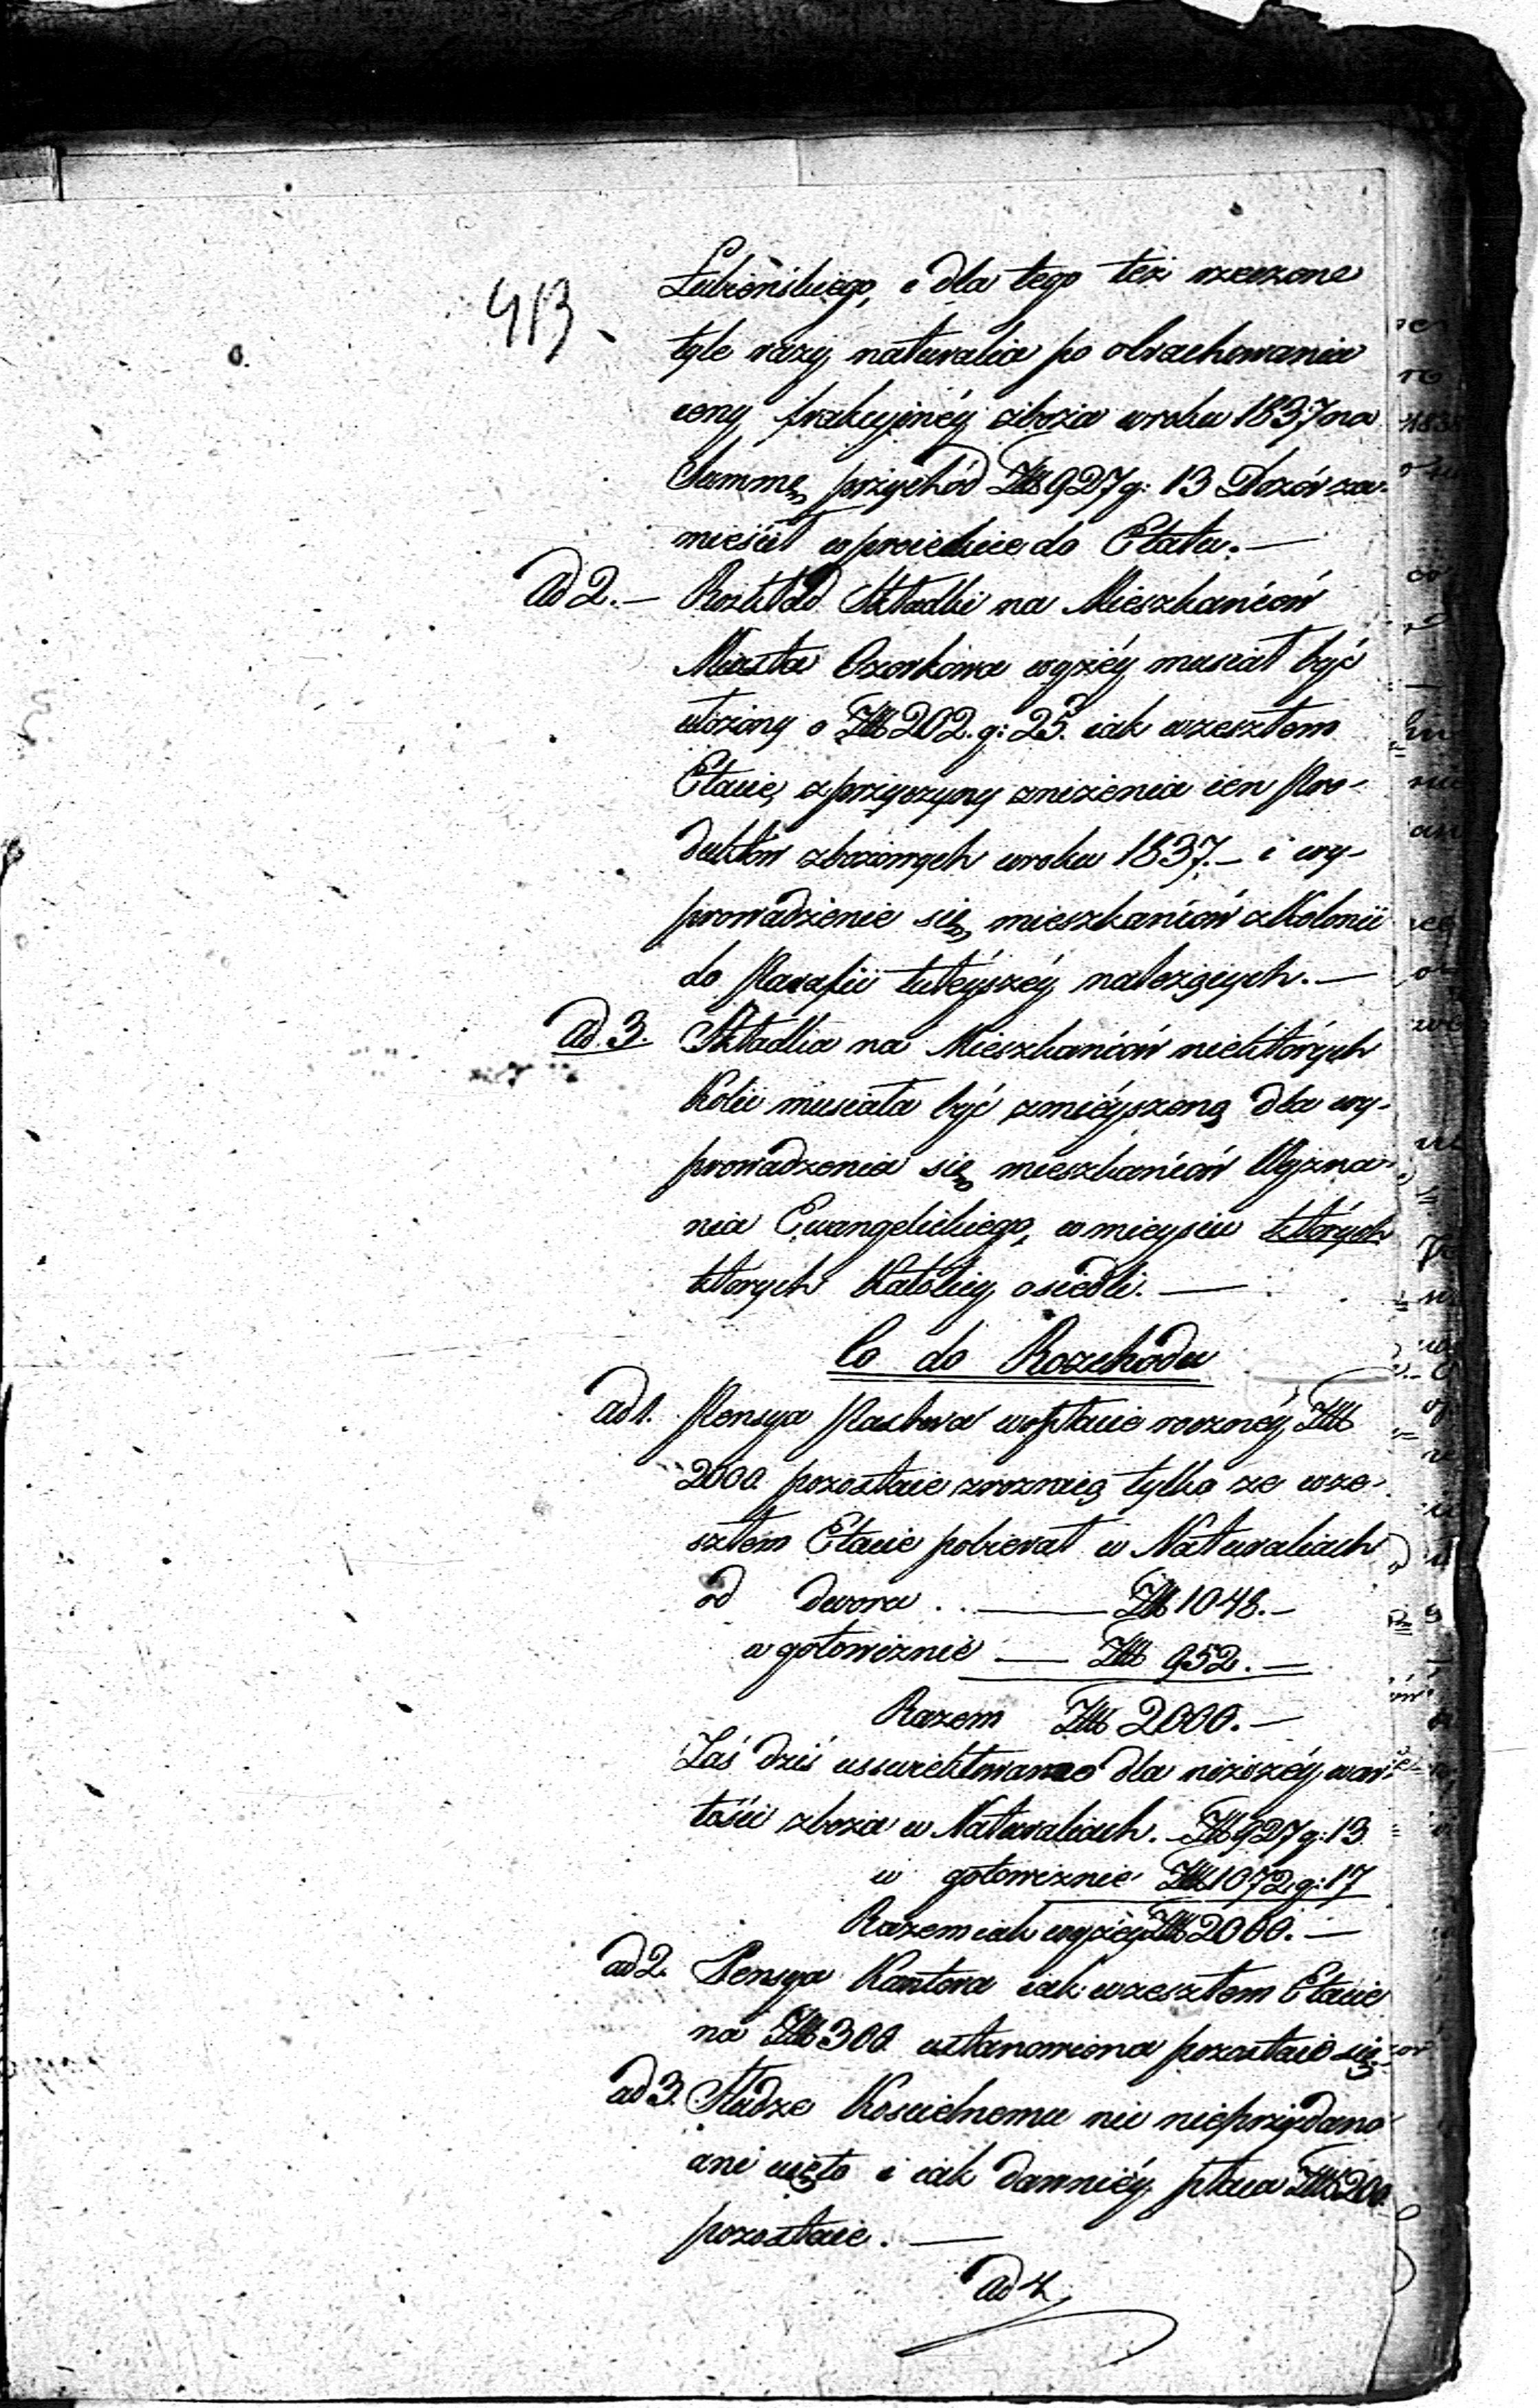 413
Łubieńskiego, i dla tego też rzeczone
tyle razy naturalia po obrachowaniu
ceny frakcyjnéy zboża w roku 1837 na
Summę przychód Złł 927 g: 13 Dozór za-
mieścił w proiekcie do Etatu. —
Ad 2. — Rozkład Składki na Mieszkańców
Miasta Ozorkowa wyżéy musiał być
ułożony o Złł 202. g: 25. iak w zeszłem
Etacie, z przyczyny zniżenia cen Pro-
duktów zbożowych w roku 1837. — i wy-
prowadzenie się mieszkańców z Kolonii
do Parafii tutéyszéy należących. —
ad. 3. Składka na Mieszkańców niektórych
Kolii musiała być zmniéyszoną dla wy-
prowadzenia się mieszkańców Wyzna-
nia Ewangelickiego, w mieysce których
których Katolicy osiedli. —
Co do Rozchodu
ad 1. Pensya Pastora w opłacie roczney Złł
2000 pozostaie z rożnicą tylko ze w ze-
szłem Etacie pobierał w Naturaliach
od dwora . . — Złł 1048. —
w gotowiznie — Złł 952. —
Razem Złł 2000. —
Zaś dziś dla niższéy war-
tości zboża w Naturaliach. Złł 927 g: 13
w gotowiznie Złł 1072 g: 17
Razem iak wyżéy Złł 2000. —
ad 2. Pensya Kantora iak w zeszłem Etacie
na Złł 300 ustanowiona pozostaie się
ad 3. Słudze Koscielnemu nic nieprzydano
ani uięto i iak dawniéy płaca Złł 200
pozostaie. —
ad 4